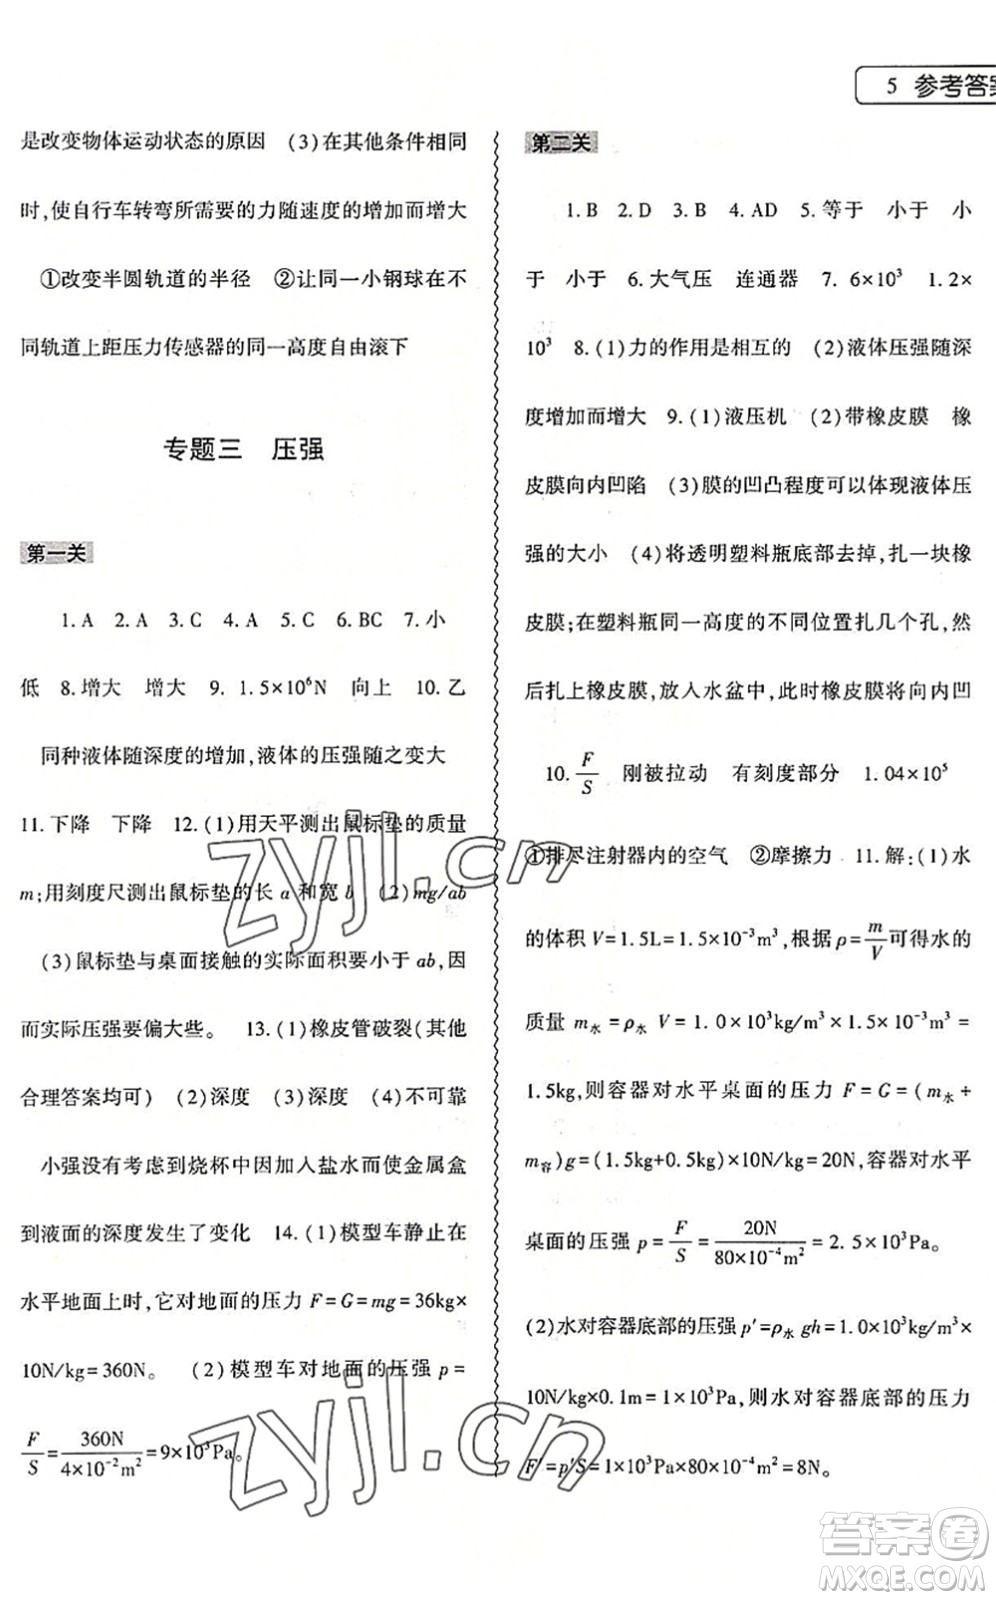 5 参考答案
是改变物体运动状态的原因 (3)在其他条件相同
时,使自行车转弯所需要的力随速度的增加而增大
①改变半圆轨道的半径 ②让同一小钢球在不
同轨道上距压力传感器的同一高度自由滚下
专题三 压强
第一关
1. A 2. A 3. C 4. A 5. C 6. BC 7. 小
低 8. 增大 增大 9. 1.5×10⁶N 向上 10. 乙
同种液体随深度的增加,液体的压强随之变大
11. 下降 下降 12. (1)用天平测出鼠标垫的质量
m;用刻度尺测出鼠标垫的长 a 和宽 b (2)mg/ab
(3)鼠标垫与桌面接触的实际面积要小于 ab,因
而实际压强要偏大些。 13. (1)橡皮管破裂(其他
合理答案均可) (2)深度 (3)深度 (4)不可靠
小强没有考虑到烧杯中因加入盐水而使金属盒
到液面的深度发生了变化 14. (1)模型车静止在
水平地面上时,它对地面的压力 F=G=mg=36kg×
10N/kg=360N。 (2)模型车对地面的压强 p=
F/S=360N/4×10⁻²m²=9×10³Pa。
第二关
1. B 2. D 3. B 4. AD 5. 等于 小于 小
于 小于 6. 大气压 连通器 7. 6×10³ 1.2×
10³ 8. (1)力的作用是相互的 (2)液体压强随深
度增加而增大 9. (1)液压机 (2)带橡皮膜 橡
皮膜向内凹陷 (3)膜的凹凸程度可以体现液体压
强的大小 (4)将透明塑料瓶底部去掉,扎一块橡
皮膜;在塑料瓶同一高度的不同位置扎几个孔,然
后扎上橡皮膜,放入水盆中,此时橡皮膜将向内凹
10. F/S 刚被拉动 有刻度部分 1.04×10⁵
①排尽注射器内的空气 ②摩擦力 11. 解:(1)水
的体积 V=1.5L=1.5×10⁻³m³,根据 ρ=m/V可得水的
质量 m水=ρ水 V=1.0×10³kg/m³×1.5×10⁻³m³=
1.5kg,则容器对水平桌面的压力 F=G=(m水+
m容)g=(1.5kg+0.5kg)×10N/kg=20N,容器对水平
桌面的压强 p=F/S=20N/80×10⁻⁴m²=2.5×10³Pa。
(2)水对容器底部的压强 p′=ρ水 gh=1.0×10³kg/m³×
10N/kg×0.1m=1×10³Pa,则水对容器底部的压力
F′=p′S=1×10³Pa×80×10⁻⁴m²=8N。
zyjl.cn
zyjl.cn
答案圈
MXQE.COM